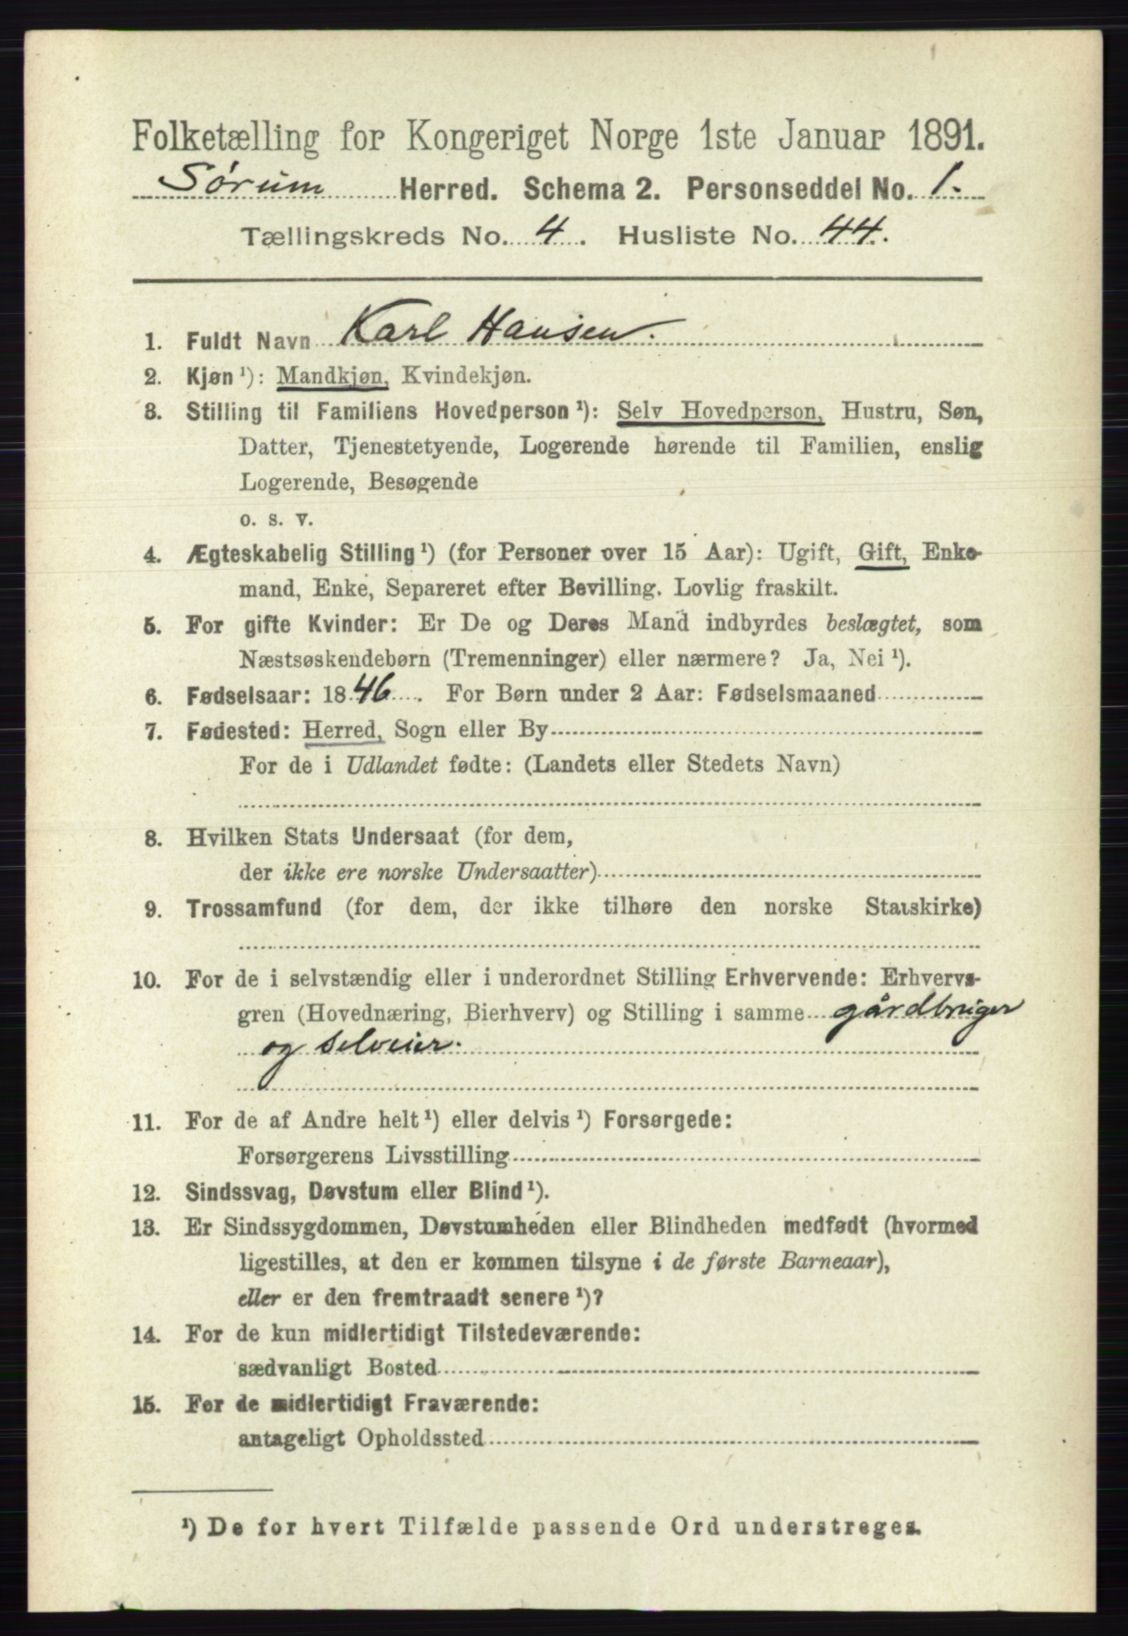 Folketælling for Kongeriget Norge 1ste Januar 1891.
Sørum Herred. Schema 2. Personseddel No. 1.
Tællingskreds No. 4. Husliste No. 44.
1. Fuldt Navn Karl Hansen.
2. Kjøn ¹): Mandkjøn, Kvindekjøn.
3. Stilling til Familiens Hovedperson ¹): Selv Hovedperson, Hustru, Søn,
Datter, Tjenestetyende, Logerende hørende til Familien, enslig
Logerende, Besøgende
o. s. v.
4. Ægteskabelig Stilling ¹) (for Personer over 15 Aar): Ugift, Gift, Enke-
mand, Enke, Separeret efter Bevilling. Lovlig fraskilt.
5. For gifte Kvinder: Er De og Deres Mand indbyrdes beslægtet, som
Næstsøskendebørn (Tremenninger) eller nærmere? Ja, Nei ¹).
6. Fødselsaar: 1846. For Børn under 2 Aar: Fødselsmaaned
7. Fødested: Herred, Sogn eller By
For de i Udlandet fødte: (Landets eller Stedets Navn)
8. Hvilken Stats Undersaat (for dem,
der ikke ere norske Undersaatter)
9. Trossamfund (for dem, der ikke tilhøre den norske Statskirke)
10. For de i selvstændig eller i underordnet Stilling Erhvervende: Erhvervs-
gren (Hovednæring, Bierhverv) og Stilling i samme gårdbruger
og selveier.
11. For de af Andre helt ¹) eller delvis ¹) Forsørgede:
Forsørgerens Livsstilling
12. Sindssvag, Døvstum eller Blind ¹).
13. Er Sindssygdommen, Døvstumheden eller Blindheden medfødt (hvormed
ligestilles, at den er kommen tilsyne i de første Barneaar),
eller er den fremtraadt senere ¹)?
14. For de kun midlertidigt Tilstedeværende:
sædvanligt Bosted
15. For de midlertidigt Fraværende:
antageligt Opholdssted
¹) De for hvert Tilfælde passende Ord understreges.